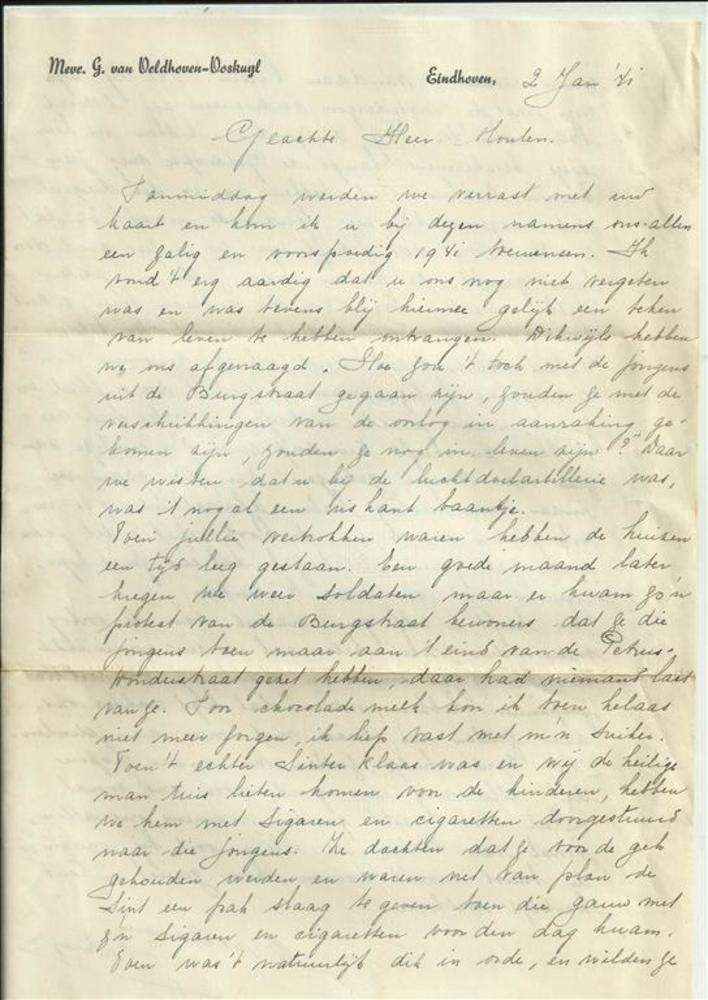 Mevr. G. van Veldhoven-Ooskuyl
Eindhoven, 2 Jan '41
Geachte Heer Houten.
Vanmiddag werden we verrast met uw
kaart en kom ik u bij dezen namens ons allen
een zalig en voorspoedig 1941 toewensen. Ik
vond 't erg aardig dat u ons nog niet vergeten
was en was tevens blij hiermee gelijk een teken
van leven te hebben ontvangen. Dikwijls hebben
we ons afgevraagd. Hoe zou 't toch met de jongens
uit de Burgstraat gegaan zijn, zouden ze met de
verschrikkingen van de oorlog in aanraking ge-
komen zijn, zouden ze nog in leven zijn?" Daar
we wisten dat u bij de luchtdoelartillerie was,
was 't nog al een riskant baantje.
Toen jullie vertrokken waren hebben de huizen
een tijd leeg gestaan. Een goede maand later
kregen we weer soldaten maar er kwam zo'n
protest van de Burgstraat bewoners dat ze die
jongens toen maar aan 't eind van de Petrus-
Donderstraat gezet hebben, daar had niemand last
van ze. Voor chocolade melk kon ik toen helaas
niet meer zorgen, ik liep vast met m'n suiker.
Toen 't echter Sinterklaas was en wij de heilige
man thuis lieten komen voor de kinderen, hebben
we hem met sigaren en cigaretten doorgestuurd
naar die jongens. Ze dachten dat ze voor de gek
gehouden werden en waren net van plan de
Sint een pak slaag te geven toen die gauw met
z'n sigaren en cigaretten voor den dag kwam.
Toen was 't natuurlijk dik in orde, en wilden ze